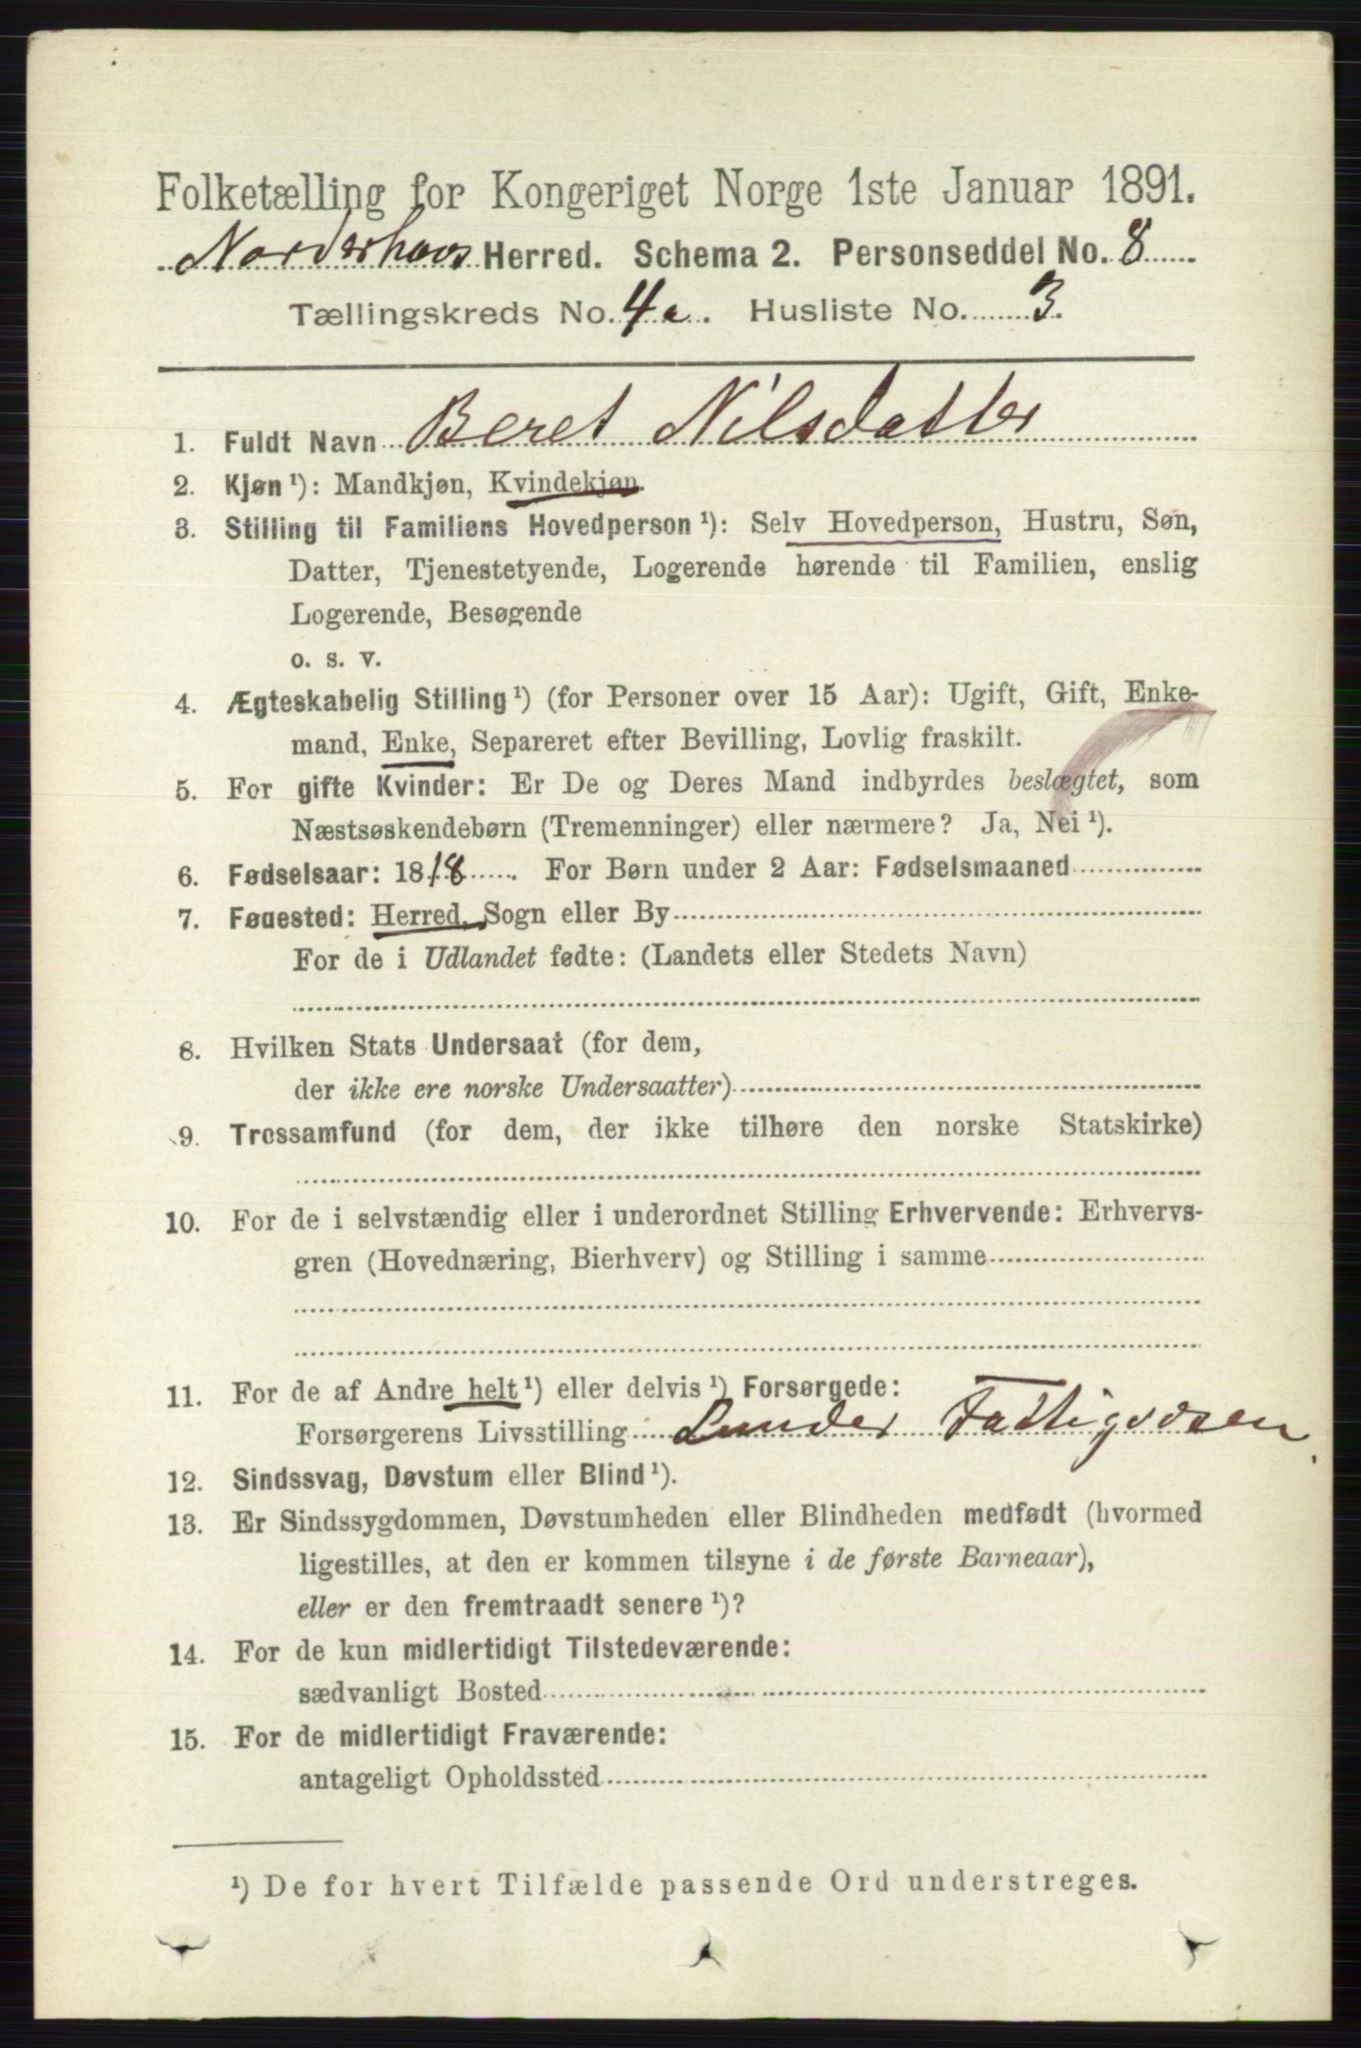 Folketælling for Kongeriget Norge 1ste Januar 1891.
Norderhovs Herred. Schema 2. Personseddel No. 8
Tællingskreds No. 4a. Husliste No. 3.
1. Fuldt Navn Beret Nilsdatter
2. Kjøn ¹): Mandkjøn, Kvindekjøn.
3. Stilling til Familiens Hovedperson ¹): Selv Hovedperson, Hustru, Søn,
Datter, Tjenestetyende, Logerende hørende til Familien, enslig
Logerende, Besøgende
o. s. v.
4. Ægteskabelig Stilling ¹) (for Personer over 15 Aar): Ugift, Gift, Enke-
mand, Enke, Separeret efter Bevilling, Lovlig fraskilt.
5. For gifte Kvinder: Er De og Deres Mand indbyrdes beslægtet, som
Næstsøskendebørn (Tremenninger) eller nærmere? Ja, Nei ¹).
6. Fødselsaar: 1818. For Børn under 2 Aar: Fødselsmaaned
7. Føuested: Herred, Sogn eller By
For de i Udlandet fødte: (Landets eller Stedets Navn)
8. Hvilken Stats Undersaat (for dem,
der ikke ere norske Undersaatter)
9. Trossamfund (for dem, der ikke tilhøre den norske Statskirke)
10. For de i selvstændig eller i underordnet Stilling Erhvervende: Erhvervs-
gren (Hovednæring, Bierhverv) og Stilling i samme
11. For de af Andre helt ¹) eller delvis ¹) Forsørgede:
Forsørgerens Livsstilling Lunder Fattigvæsen
12. Sindssvag, Døvstum eller Blind ¹).
13. Er Sindssygdommen, Døvstumheden eller Blindheden medfødt (hvormed
ligestilles, at den er kommen tilsyne i de første Barneaar),
eller er den fremtraadt senere ¹)?
14. For de kun midlertidigt Tilstedeværende:
sædvanligt Bosted
15. For de midlertidigt Fraværende:
antageligt Opholdssted
¹) De for hvert Tilfælde passende Ord understreges.